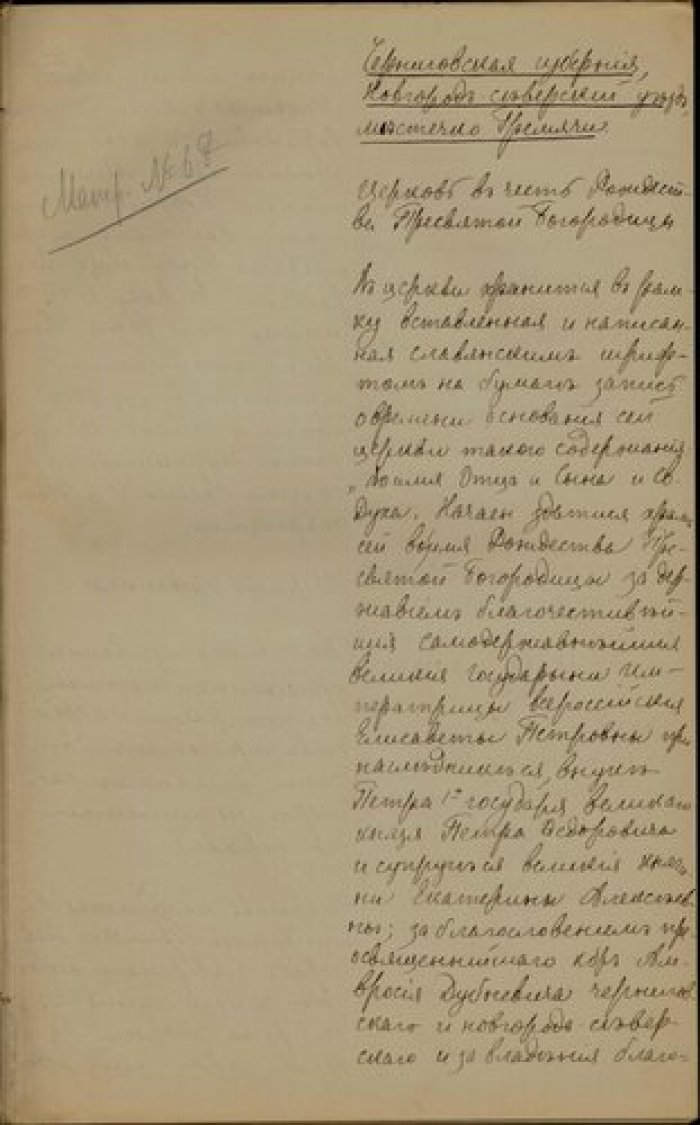 Черниговская губернія,
Новгородъ сѣверский уѣздъ,
мѣстечко Гремячи.
Матр. № 67
Церковь въ честь Рождест-
ва Пресвятой Богородицы
Въ церкви хранится въ рам-
ку вставленная и написан-
ная славянскимъ шриф-
томъ на бумагѣ запись
о времени основания сей
церкви такого содержания
„Во имя Отца и Сына и Св.
Духа. Начаен здатися храмъ
сей во имя Рождества Пре-
святой Богородицы за дер-
жавіемъ благочестивѣй-
шия самодержавнѣйшия
великия государыни им-
ператрицы всероссійския
Елисаветы Петровны при
наслѣдникѣ ея, внукѣ
Петра 1го государя великаго
князя Петра Федоровича
и супругѣ ея великия княги-
ни Екатерины Алексѣев-
ны; за благословениемъ пре-
освященнѣйшаго кѵръ Ам-
вросія Дубневича чернигов-
скаго и новгородъ сѣвер-
скаго и за владѣния благо-